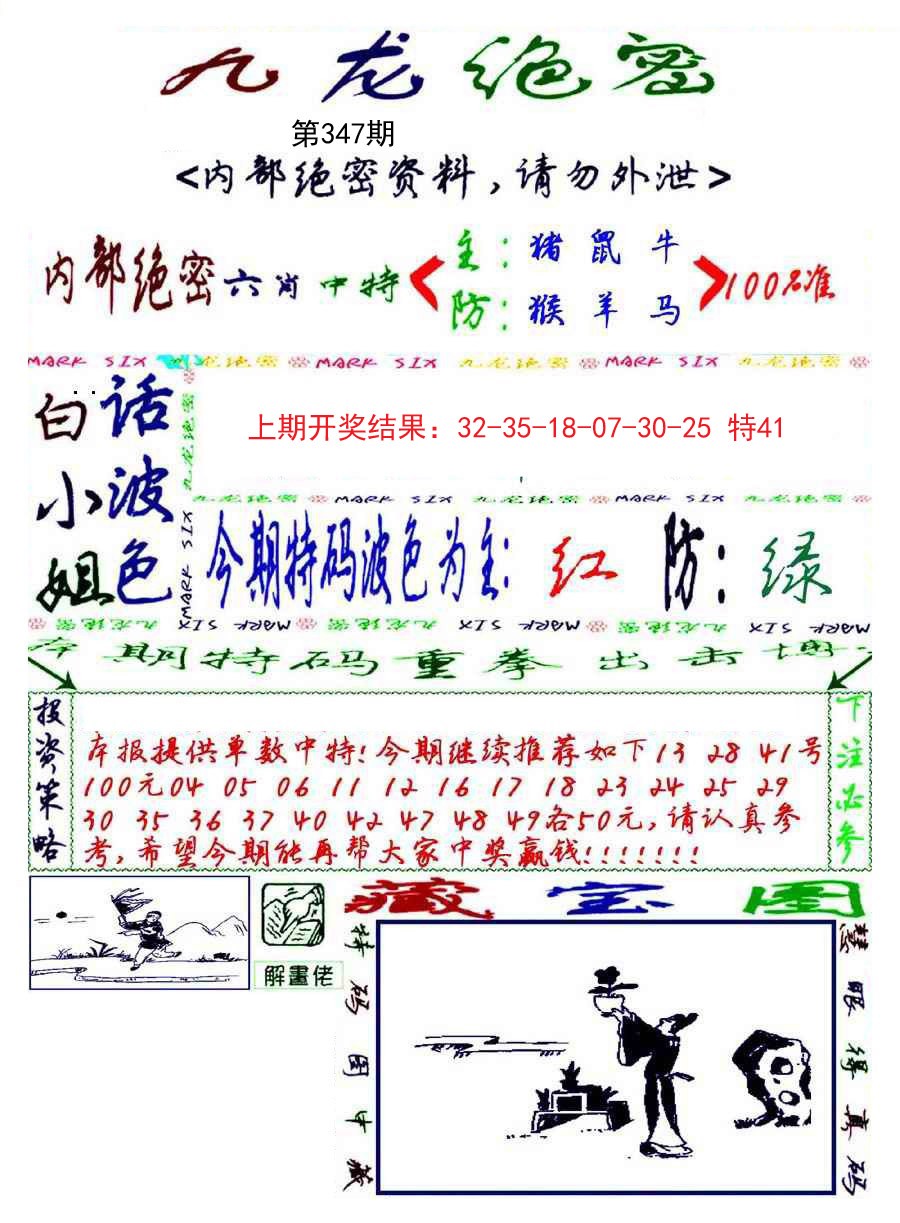 九龙绝密
第347期
<内部绝密资料,请勿外泄>
内部绝密六肖中特
主:猪鼠牛
防:猴羊马
100%准
MARK SIX 九龙绝密 MARK SIX 九龙绝密 MARK SIX 九龙绝密
白小姐
话波色
九龙绝密
MARK SIX
上期开奖结果：32-35-18-07-30-25 特41
九龙绝密 MARK SIX 九龙绝密 MARK SIX 九龙绝密
今期特码波色为主:红 防:绿
九龙绝密 MARK SIX 九龙绝密 MARK SIX 九龙绝密 MARK SIX
本期特码重拳出击
投资策略
本报提供单数中特!今期继续推荐如下13 28 41号
100元04 05 06 11 12 16 17 18 23 24 25 29
30 35 36 37 40 42 47 48 49各50元,请认真参
考,希望今期能再帮大家中奖赢钱!!!!!!!
下注必参
解畫佬
藏宝图
特码图中藏
慧眼得真码